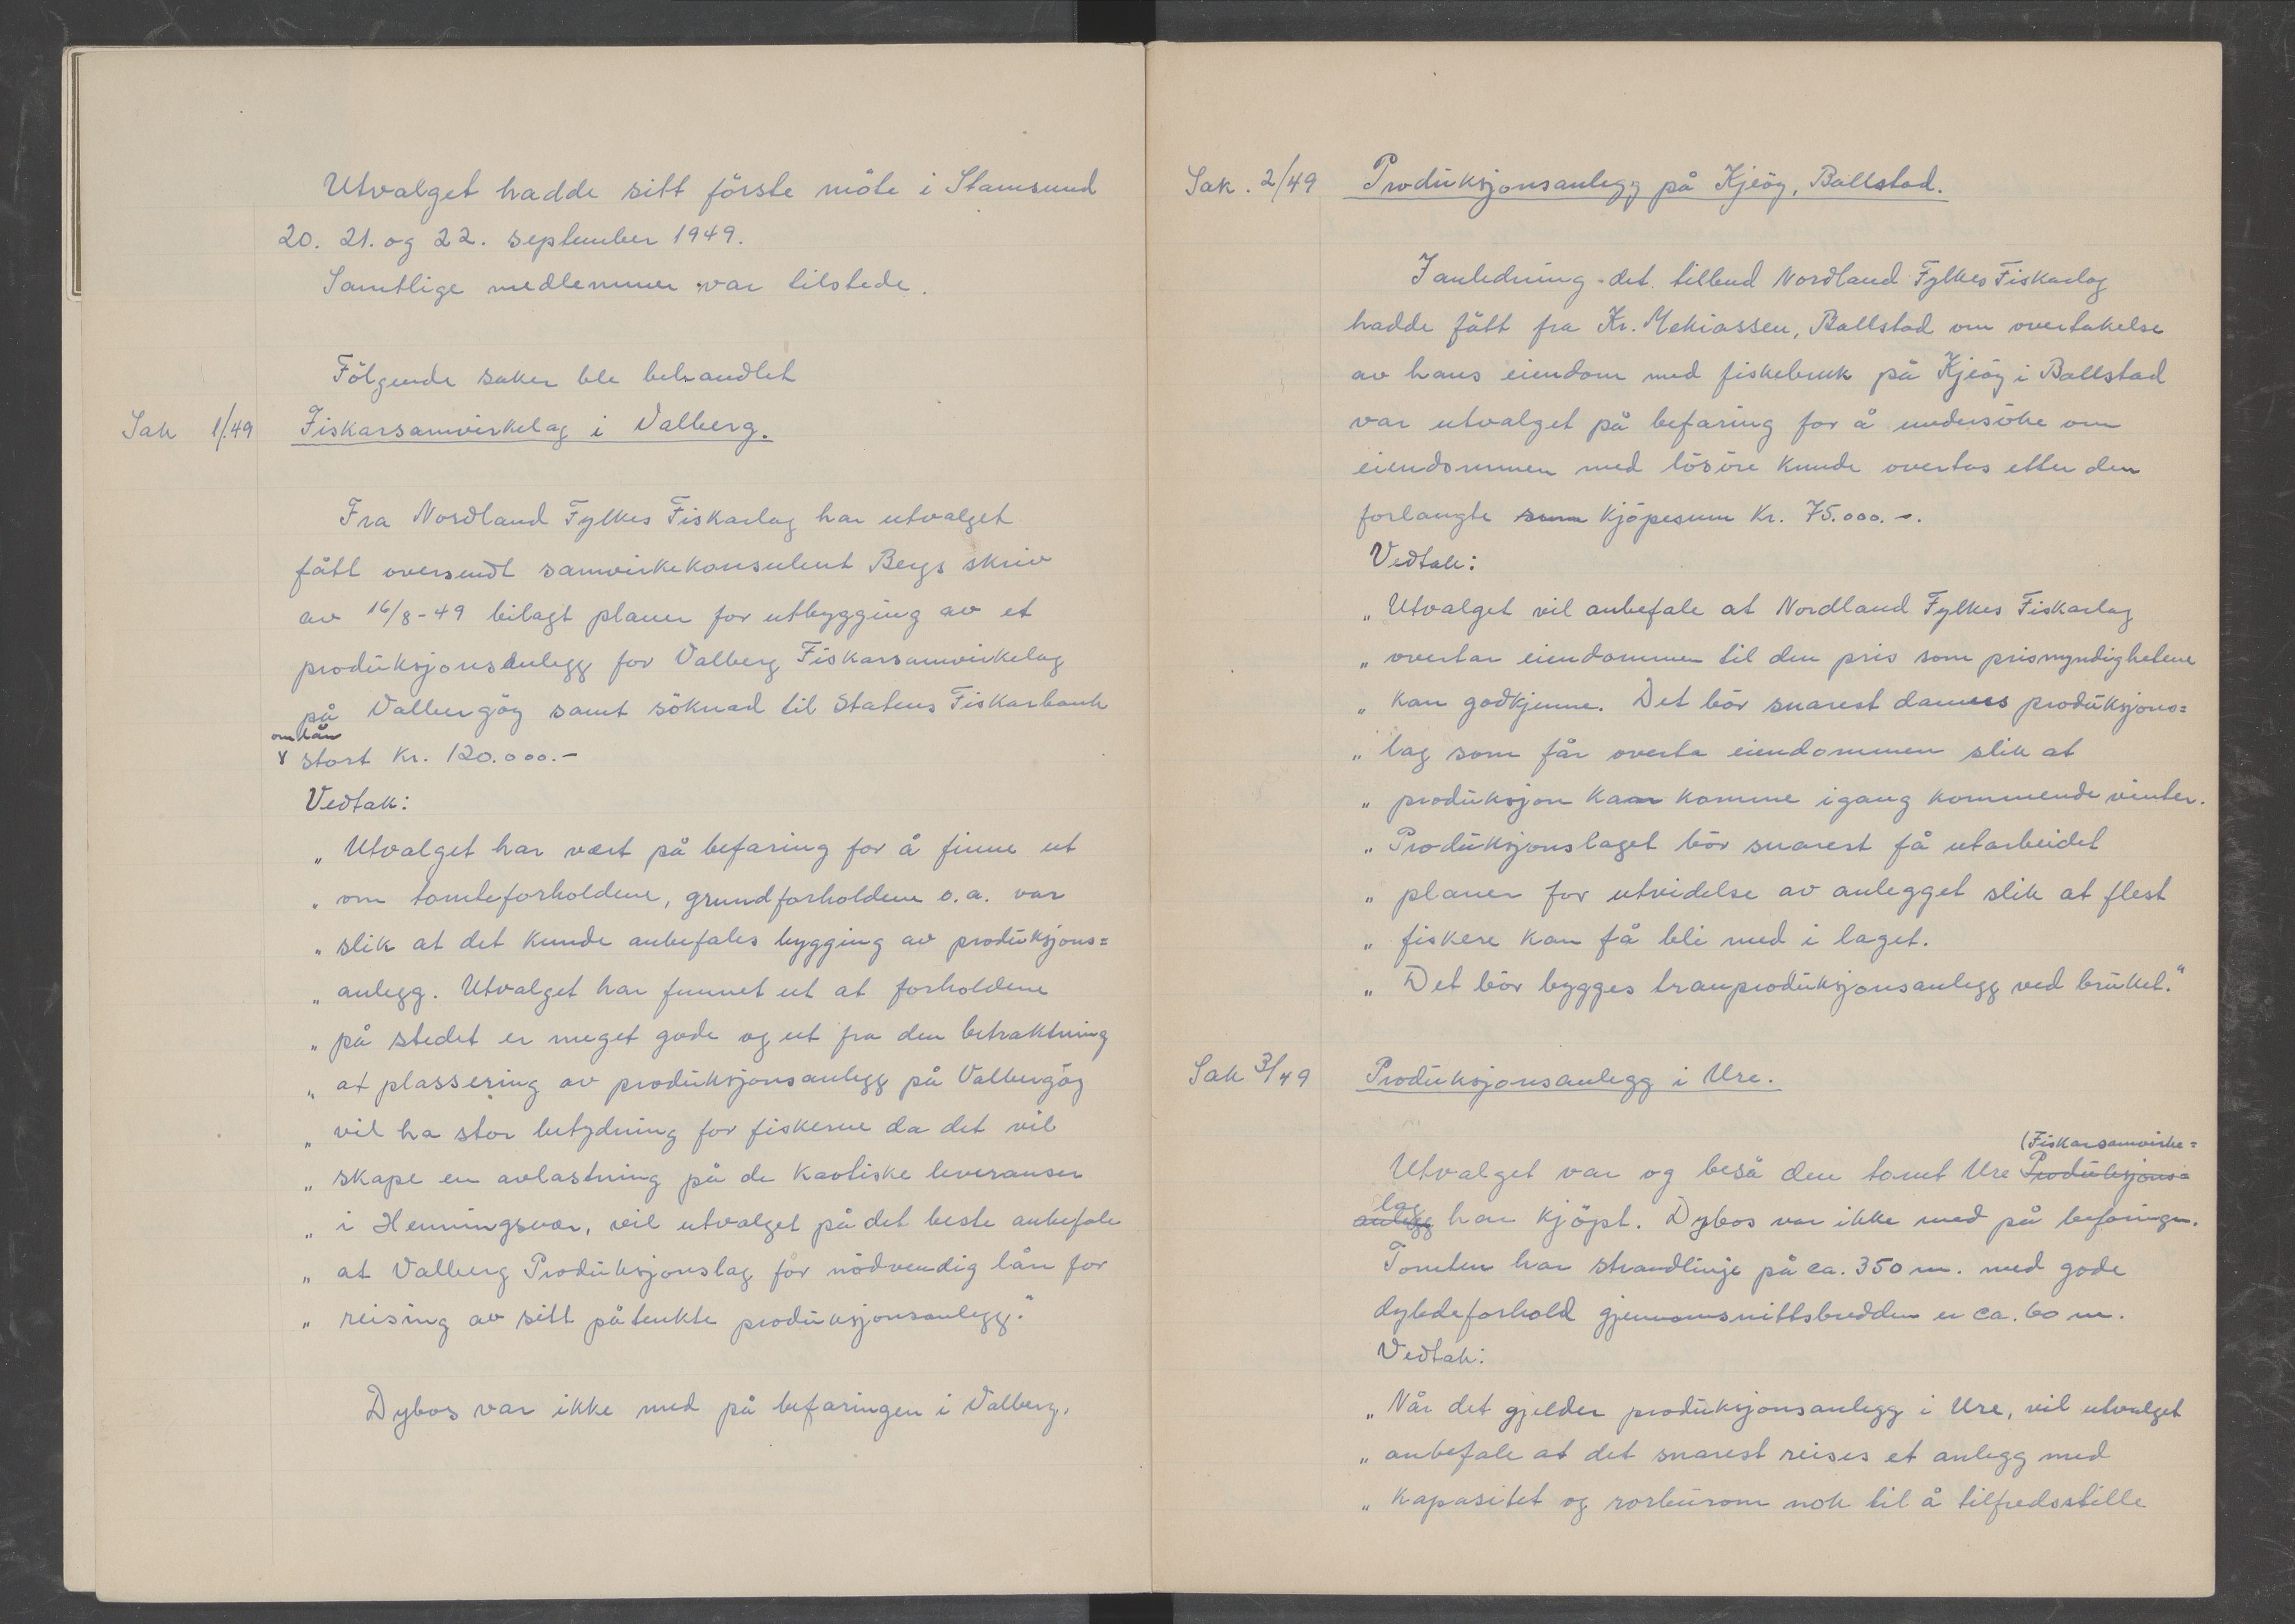 Utvalget hadde sitt förste möte i Stamsund
20. 21. og 22. september 1949.
Samtlige medlemmer var tilstede.
Fölgende saker ble behandlet
Sak 1/.49 Fiskarsamvirkelag i Valberg.
Fra Nordland Fylkes Fiskarlag har utvalget
fått oversendt samvirkekonsulent Bergs skriv
av 16/8-49 bilagt planer for utbygging av et
produksjonsanlegg for Valberg Fiskarsamvirkelag
på Valbergöy samt söknad til Statens Fiskarbank
om lån
stort Kr. 120.000.-
Vedtak:
„ Utvalget har vært på befaring for å finne ut
„ om tomteforholdene, grundforholdene o.a. var
„ slik at det kunde anbefales bygging av produksjons=
„ anlegg. Utvalget har funnet ut at forholdene
„ på stedet er meget gode og ut fra den betraktning
„ at plassering av produksjonsanlegg på Valbergöy
„ vil ha stor betydning for fiskerne da det vil
„ skape en avlastning på de kaotiske leveranser
„ i Henningsvær, vil utvalget på det beste anbefale
„ at Valberg Produksjonslag får nödvendig lån for
„ reising av sitt påtenkte produksjonsanlegg."
Dybos var ikke med på befaringen i Valberg.
Sak. 2/49 Produksjonsanlegg på Kjeöy, Ballstad.
I anledning det tilbud Nordland Fylkes Fiskarlag
hadde fått fra Kr. Mekiassen, Ballstad om overtakelse
av hans eiendom med fiskebruk på Kjeöy i Ballstad
var utvalget på befaring for å undersöke om
eiendommen med lösöre kunde overtas etter den
forlangte sum kjöpesum Kr. 75.000.-.
Vedtak:
„ Utvalget vil anbefale at Nordland Fylkes Fiskarlag
„ overtar eiendommen til den pris som prismyndighetene
„ kan godkjenne. Det bör snarest dannes produksjons=
„ lag som får overta eiendommen slik at
„ produksjon kan komme igang kommende vinter.
„ Produksjonslaget bör snarest få utarbeidet
„ planer for utvidelse av anlegget slik at flest
„ fiskere kan få bli med i laget.
„ Det bör bygges tranproduksjonsanlegg ved bruket."
Sak 3/49 Produksjonsanlegg i Ure.
(Fiskarsamvirke=
Utvalget var og beså den tomt Ure Produksjons=
lag
anlegg har kjöpt. Dybos var ikke med på befaringen.
Tomten har strandlinje på ca. 350 m. med gode
dybdeforhold gjennomsnittsbredden er ca. 60 m.
Vedtak:
„ Når det gjelder produksjonsanlegg i Ure, vil utvalget
„ anbefale at det snarest reises et anlegg med
„ kapasitet og rorburom nok til å tilfredsstille